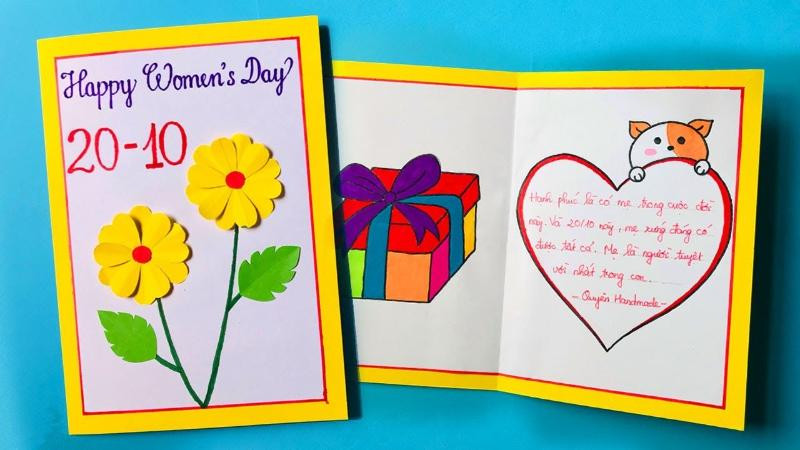 Happy Women's Day
20-10
Hạnh phúc là có mẹ trong cuộc đời
này. Và 20/10 này, mẹ xứng đáng có
được tất cả. Mẹ là người tuyệt
vời nhất trong con........
-Quyên Handmade-